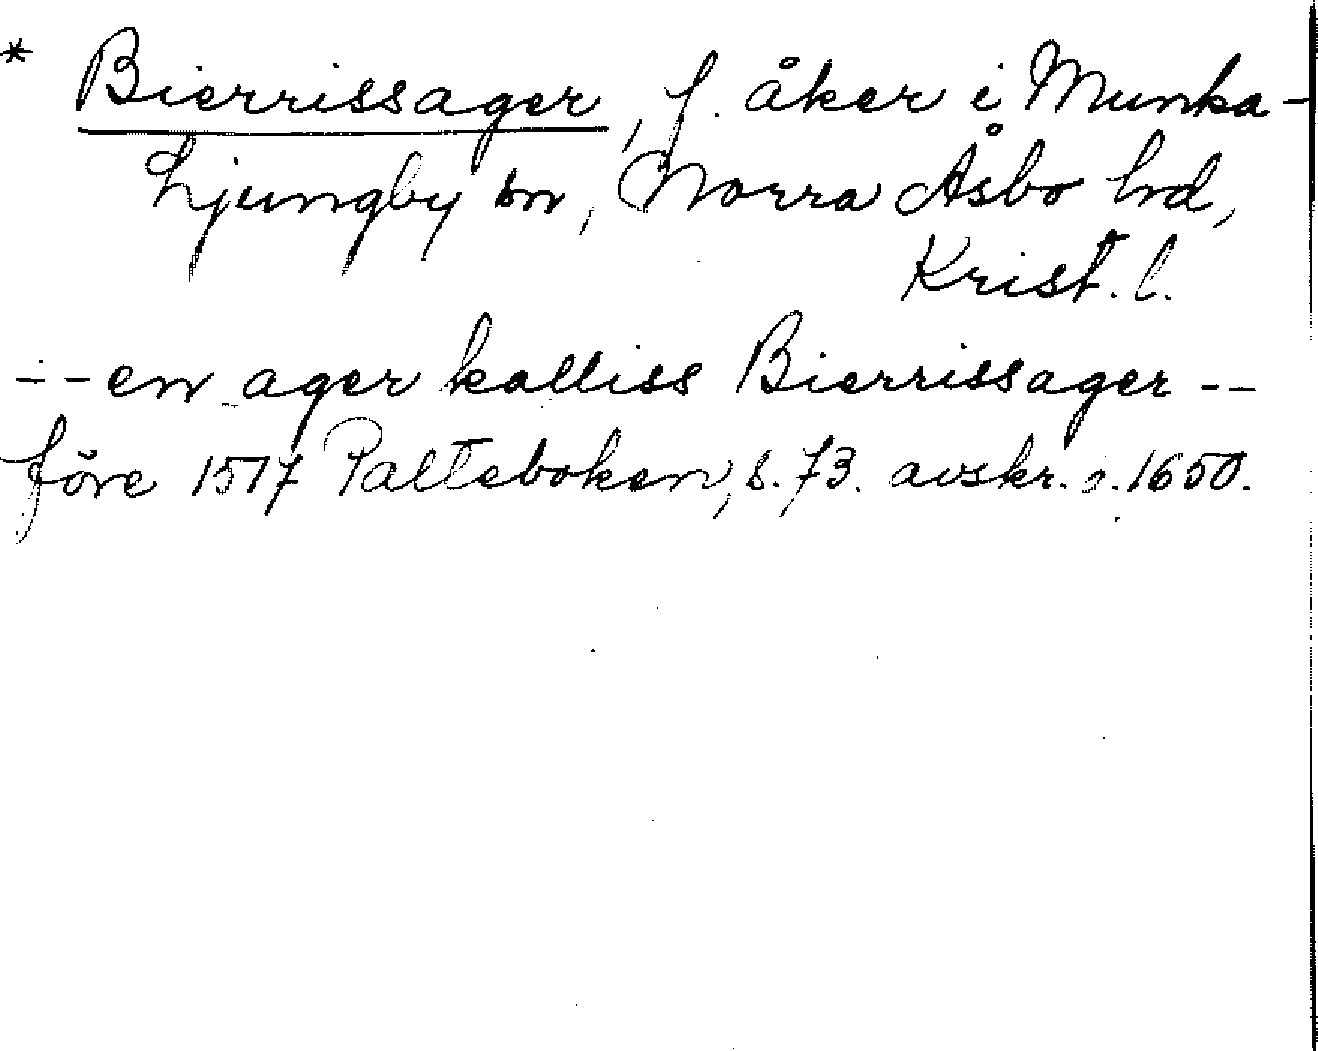 * Bierrissager, f. åker i Munka-
Ljungby sn, Norra Åsbo hd,
Krist. l.
--en ager kalliss Bierrissager--
före 1517 Palteboken, s. 73. avskr. o. 1650.